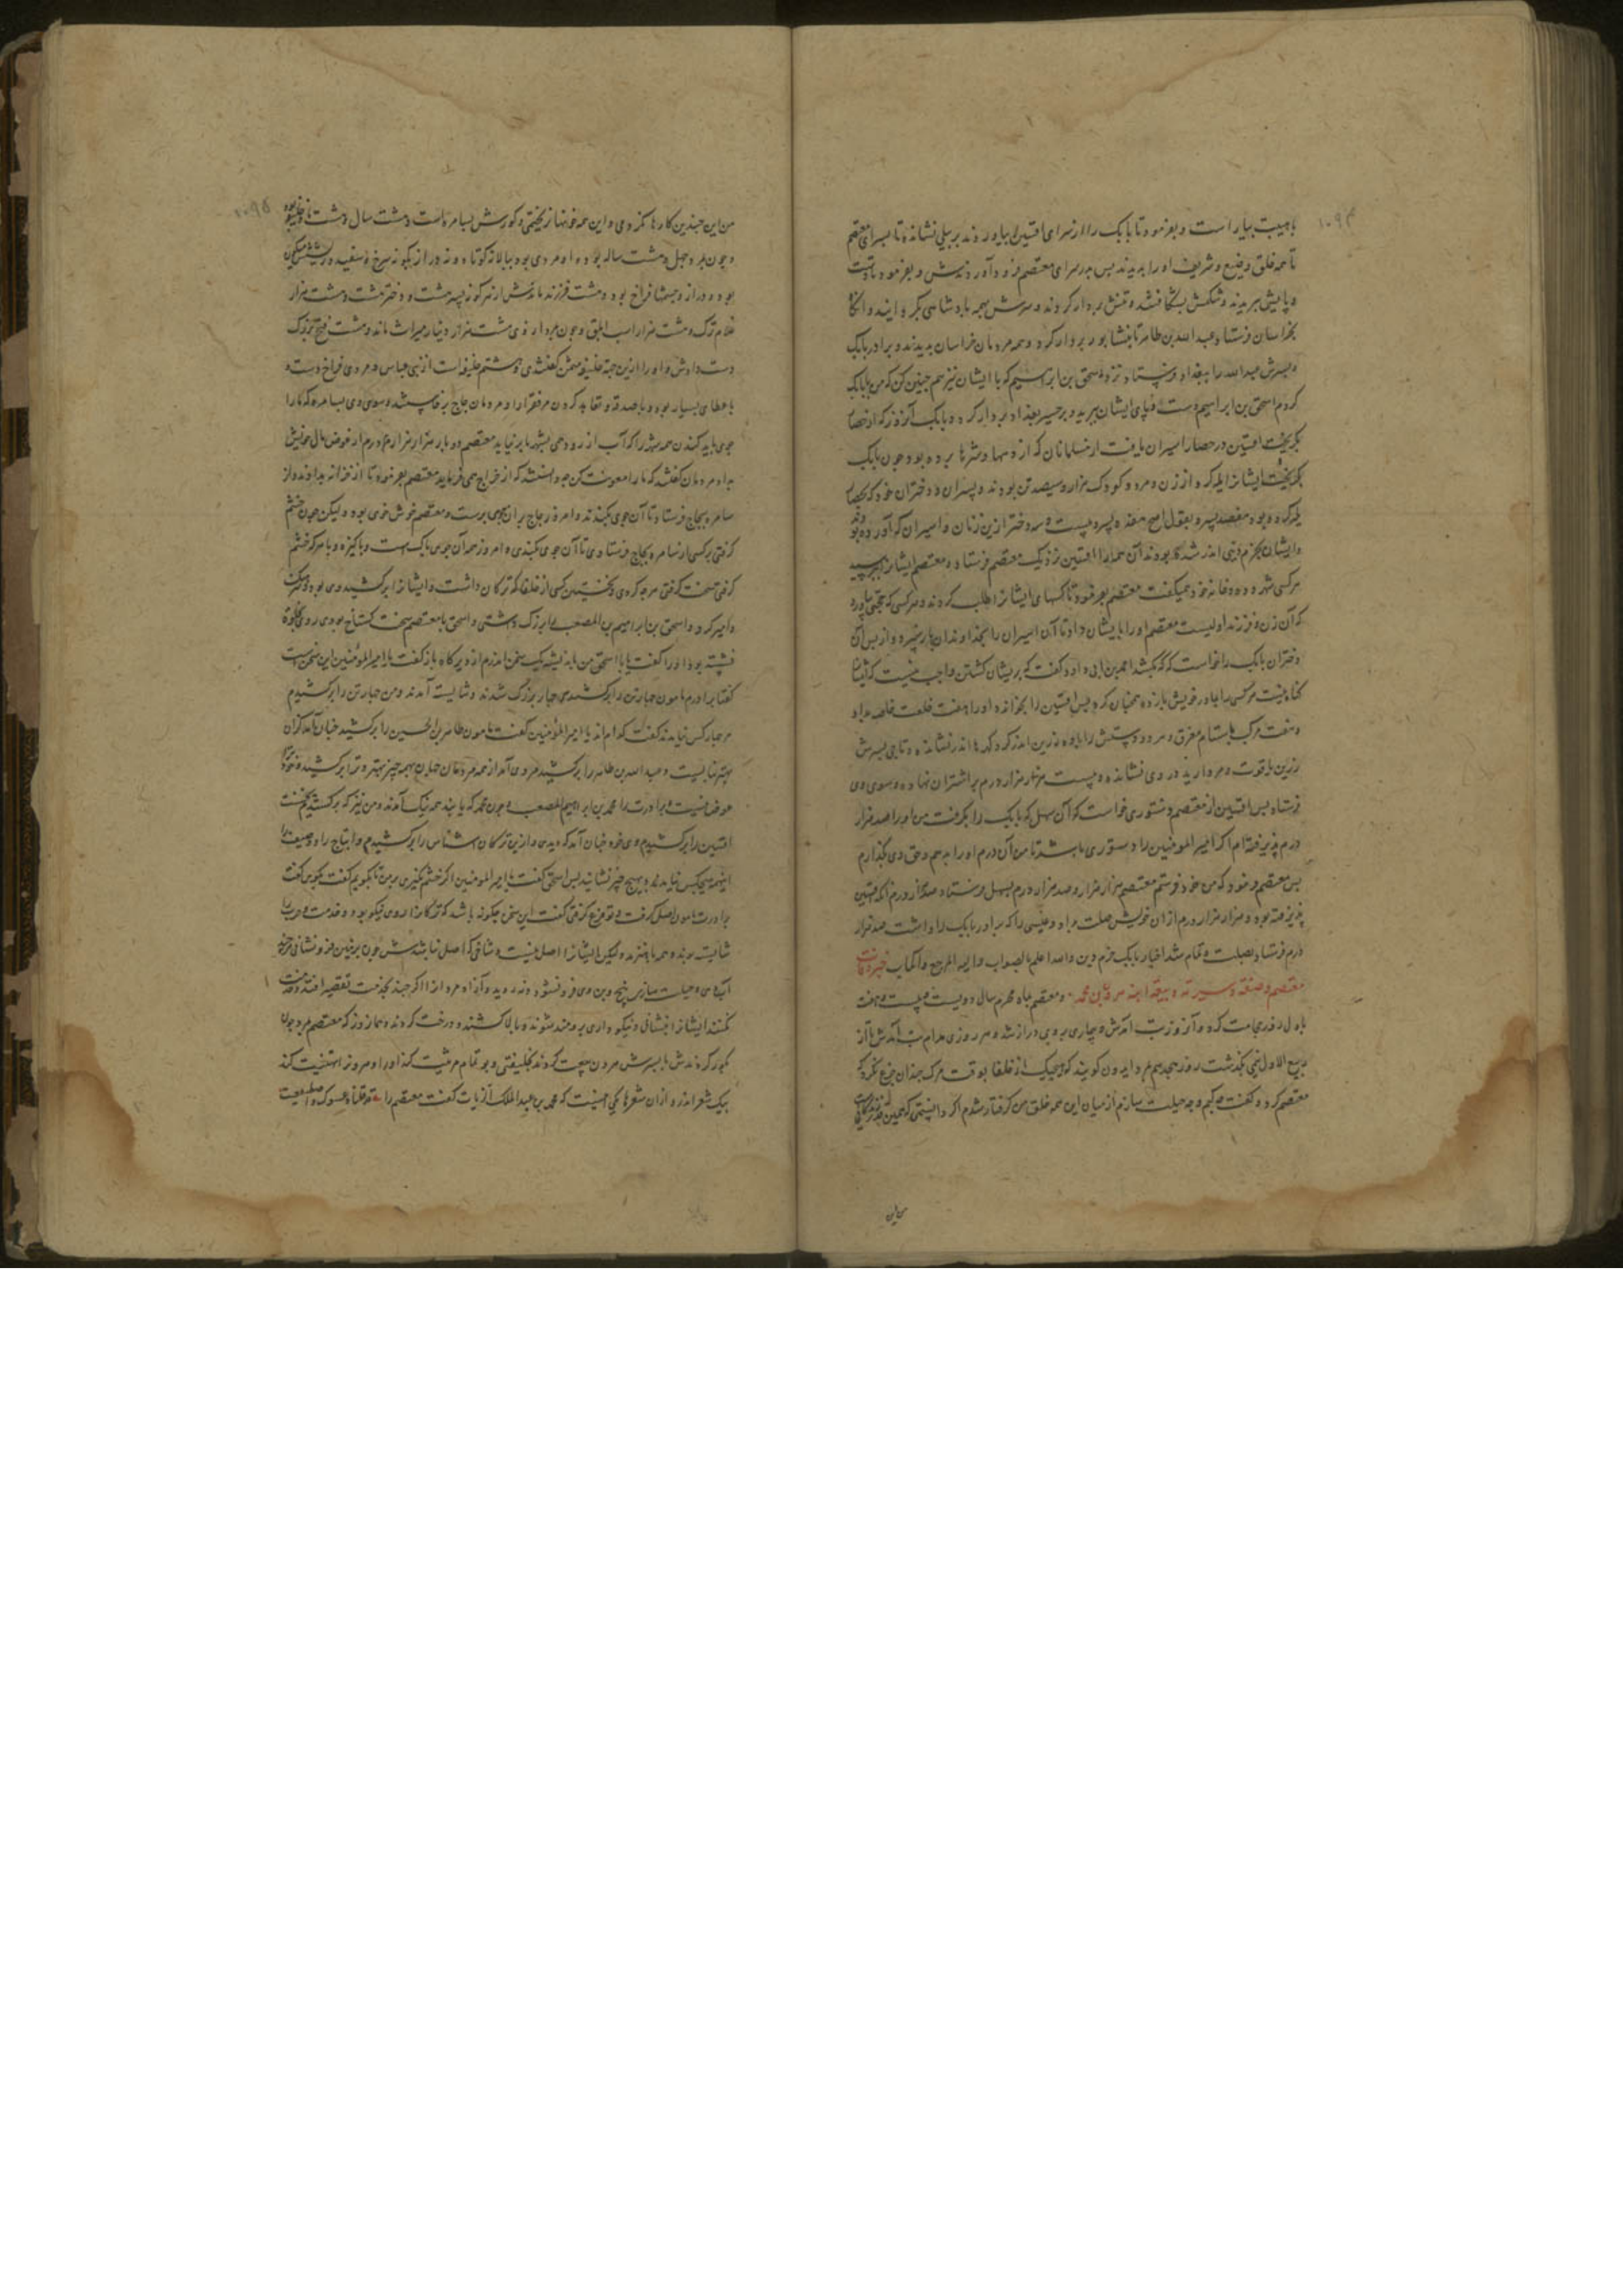 ۱۰۹۴
باهیبت بیاراست و بفرمود تا بابک را از سرای افشین بیاوردند بر پیلی نشانده تا بسرای معتصم
تا همه خلق وضیع و شریف او را بدیدند پس بدر سرای معتصم فرود آوردندش و بفرمود تا دست
و پایش ببریدند و شکمش بشکافتند و تنش بردار کردند و سرش بهمه پادشاهی بگردانیدند و آنگاه
بخراسان فرستاد عبدالله بن طاهر تا بنشابور بردار کرد و همه مردمان خراسان بدیدند و برادر بابک
و پسرش عبدالله را ببغداد فرستاد نزد اسحق بن ابراهیم که با ایشان نیز هم چنین کن که من با بابک
کردم اسحق بن ابراهیم دست و پای ایشان ببرید و بر جسر بغداد بردار کرد و بابک آنروز که از حصار
بگریخت افشین در حصار اسیران یافت از مسلمانان که از دیهها و شهرها برده بود چون بابک
بگریخت ایشانرا یله کرد از زن و مرد و کودک هزار و سیصد تن بودند و پسران و دختران خود که بحصار
یله کرده بود هفصد پسر و بقول اصح هفده پسر و بیست و سه دختر ازین زنان و اسیران که آورده بودند
و ایشان بخرم دینی اندر شده بودند آن همه را افشین نزدیک معتصم فرستاد و معتصم ایشانرا بپرسید
هر کسی شهر و ده و خانه خود همیگفت معتصم بفرمود تا کسهای ایشانرا طلب کردند و هر کسی که حجتی بیاورد
که آن زن و فرزند اوست معتصم او را بایشان داد تا آن اسیران را بخداوندان باز سپرد و از پس آن
دختران بابک را خواست که بکشد احمد بن ابی داود گفت که بریشان کشتن واجب نیست که ایشانرا
گناه نیست هر کسی را بمادر خویش باز ده همچنان کرد پس افشین را بخواند و او را هفت خلعت خاصه بداد
و هفت مرکب با ستام مغرق و هر دو دستش را یاره زرین اندر کرد گهرها اندر نشانده و تاجی بسرش
زرین یاقوت و مروارید در وی نشانده و بیست هزار هزار درم بر اشتران نهاده و سوی وی
فرستاد پس افشین از معتصم دستوری خواست که آن سهل که بابک را بگرفت من او را صد هزار
درم پذیرفته‌ام اگر امیر المومنین را دستوری باشد تا من آن درم او را بدهم و حق وی بگذارم
پس معتصم فرمود که من خود فرستم معتصم هزار هزار و صد هزار درم بسهل فرستاد صد هزار درم آنکه افشین
پذیرفته بود و هزار هزار درم از آن خویش صلت داد و عیسی را که برادر بابک را داشت صد هزار
درم فرستاد بصلت و تمام شد اخبار بابک خرم دین والله اعلم بالصواب والیه المرجع والمآب خبر وفات
معتصم و صفته و سیرته و بیعة ابنه هرون بن محمد و معتصم بماه محرم سال دویست و بیست و هفت
باول روز حجامت کرد و آنروز تب آمدش و بیماری بر وی دراز شد و هر روزی مدام تب آمدش تا از
ربیع الاول نیمی بگذشت روز هجدهم مرد و ایدون گویند که هیچیک از خلفا بوقت مرگ چندان جزع نکرد که
معتصم کرد و گفت چه کنم و چه حیلت سازم از میان این همه خلق من گرفتار شدم اگر دانستمی که همین قدر زندگانی
من این
۱۰۹۵
من این چندین کارها نکردمی و این همه خونها نریختمی و گورش بسامره است و هشت سال و هشت ماه خلیفه بود
و چون بمرد چهل و هشت ساله بود و او مردی بود ببالا نه کوتاه و نه دراز نیکو نه سرخ و سفید و ریشش میگون
بود و دراز و چشمها فراخ بود و هشت فرزند ماندش از نرکور پسر هشت و دختر هشت و هشت هزار
غلام ترک و هشت هزار اسب ابلق و چون بمرد از وی هشت هزار دینار میراث ماند و هشت فتح بزرگ
دست دادش و او را ازین جهت خلیفه مثمن گفتندی و هشتم خلیفه است از بنی عباس و مردی فراخ دست و
باعطای بسیار بود و با صدقه و تعاهد کردن مر فقرا را و مردمان چاچ برخاستند و سوی وی بسامره که ما را
جوی باید کندن همه شهر را که آب از رود همی بشهر ما بر نیاید معتصم دو بار هزار هزار درم از عوض مال خویش
بداد مردمان گفتند که ما را معونت کن چه دانستند که از خراج همی فرماید معتصم بفرمود تا از خزانه بدادند و از
سامره بچاچ فرستاد تا آن جوی بکندند و امروز چاچ بر آن جوی برست و معتصم خوش خوی بود ولیکن چون خشم
گرفتی بر کسی از سامره بچاچ فرستادی تا آن جوی بکندی و امروز همه آن جوی پاک است و پاکیزه و با هر که خشم
گرفتی سخت گرفتی هر چه کردی و نخستین کسی از خلفا که ترکان داشت و ایشانرا برکشید وی بود و بزرگ
و امیر کرد و اسحق بن ابراهیم بن المصعب را بزرگ داشتی و اسحق با معتصم سخت گستاخ بودی روزی بخلوة
نشسته بود او را گفت یا با اسحق من باندیشه یک سخن اندرم از دیرگاه باز گفت یا امیر المؤمنین این سخن چیست
گفتا برادرم مامون چهار تن را برکشیدی هر چهار بزرگ شدند و شایسته آمدند و من چهار تن را برکشیدم
هر چهار کس نیامدند گفت کدام اند یا امیر المؤمنین گفت مامون طاهر بن الحسین را برکشید چنان آمد کزان
بهتر نبایست و عبدالله بن طاهر را برکشید مردی آمد از همه مردمان جهان بهمه چیز بهتر و ترا برکشید و خود ترا
عوض نیست و برادرت را محمد بن ابراهیم المصعب و چون محمد که یابند همه نیک آمدند و من نیز که برکشیدم نخست
افشین را برکشیدم وی خود چنان آمد که دیدی و ازین ترکان اشناس را برکشیدم و ایتاخ را و وصیف را
اینهمه هیچکس نیامدند و بهیچ خیر نشانند پس اسحق گفت یا امیر المومنین اگر خشم نگیری بر من تا بگویم گفت بگوی گفت
برادرت مامون اصل گرفت و تو فرع گرفتی گفت این سخن چگونه باشد که ترکانرا روی نیکو بود و خدمت و حرب را
شایسته بوند و همه با هنرند ولیکن ایشانرا اصل نیست و شاخی که اصل نباشدش چون بر زمین فرو نشانی هر چند
آب دهی و حیلت سازی بیخ و بن وی فرو نشود و نه روید و آزاد مردانرا اگر چند بخدمت تقصیر افتد و خدمت
نکنند ایشانرا بنشانی و نیکو داری برومند شوند و ببالا کشند و درخت گردند و همانروز که معتصم مرد و چون
بگور کردندش با پسرش هرون بیعت کردند بخلیفتی و بو تمام مرثیت کند او را و مر وزر تهنیت کند
بیک شعر اندر و از آن شعرها یکی اینست که محمد بن عبد الملک الزیات گفت معتصم را